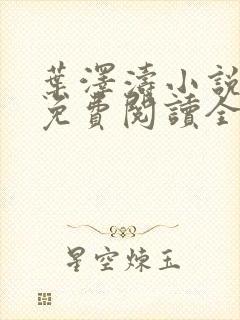 葉澤濤小說
免費閱讀全
星空煉玉